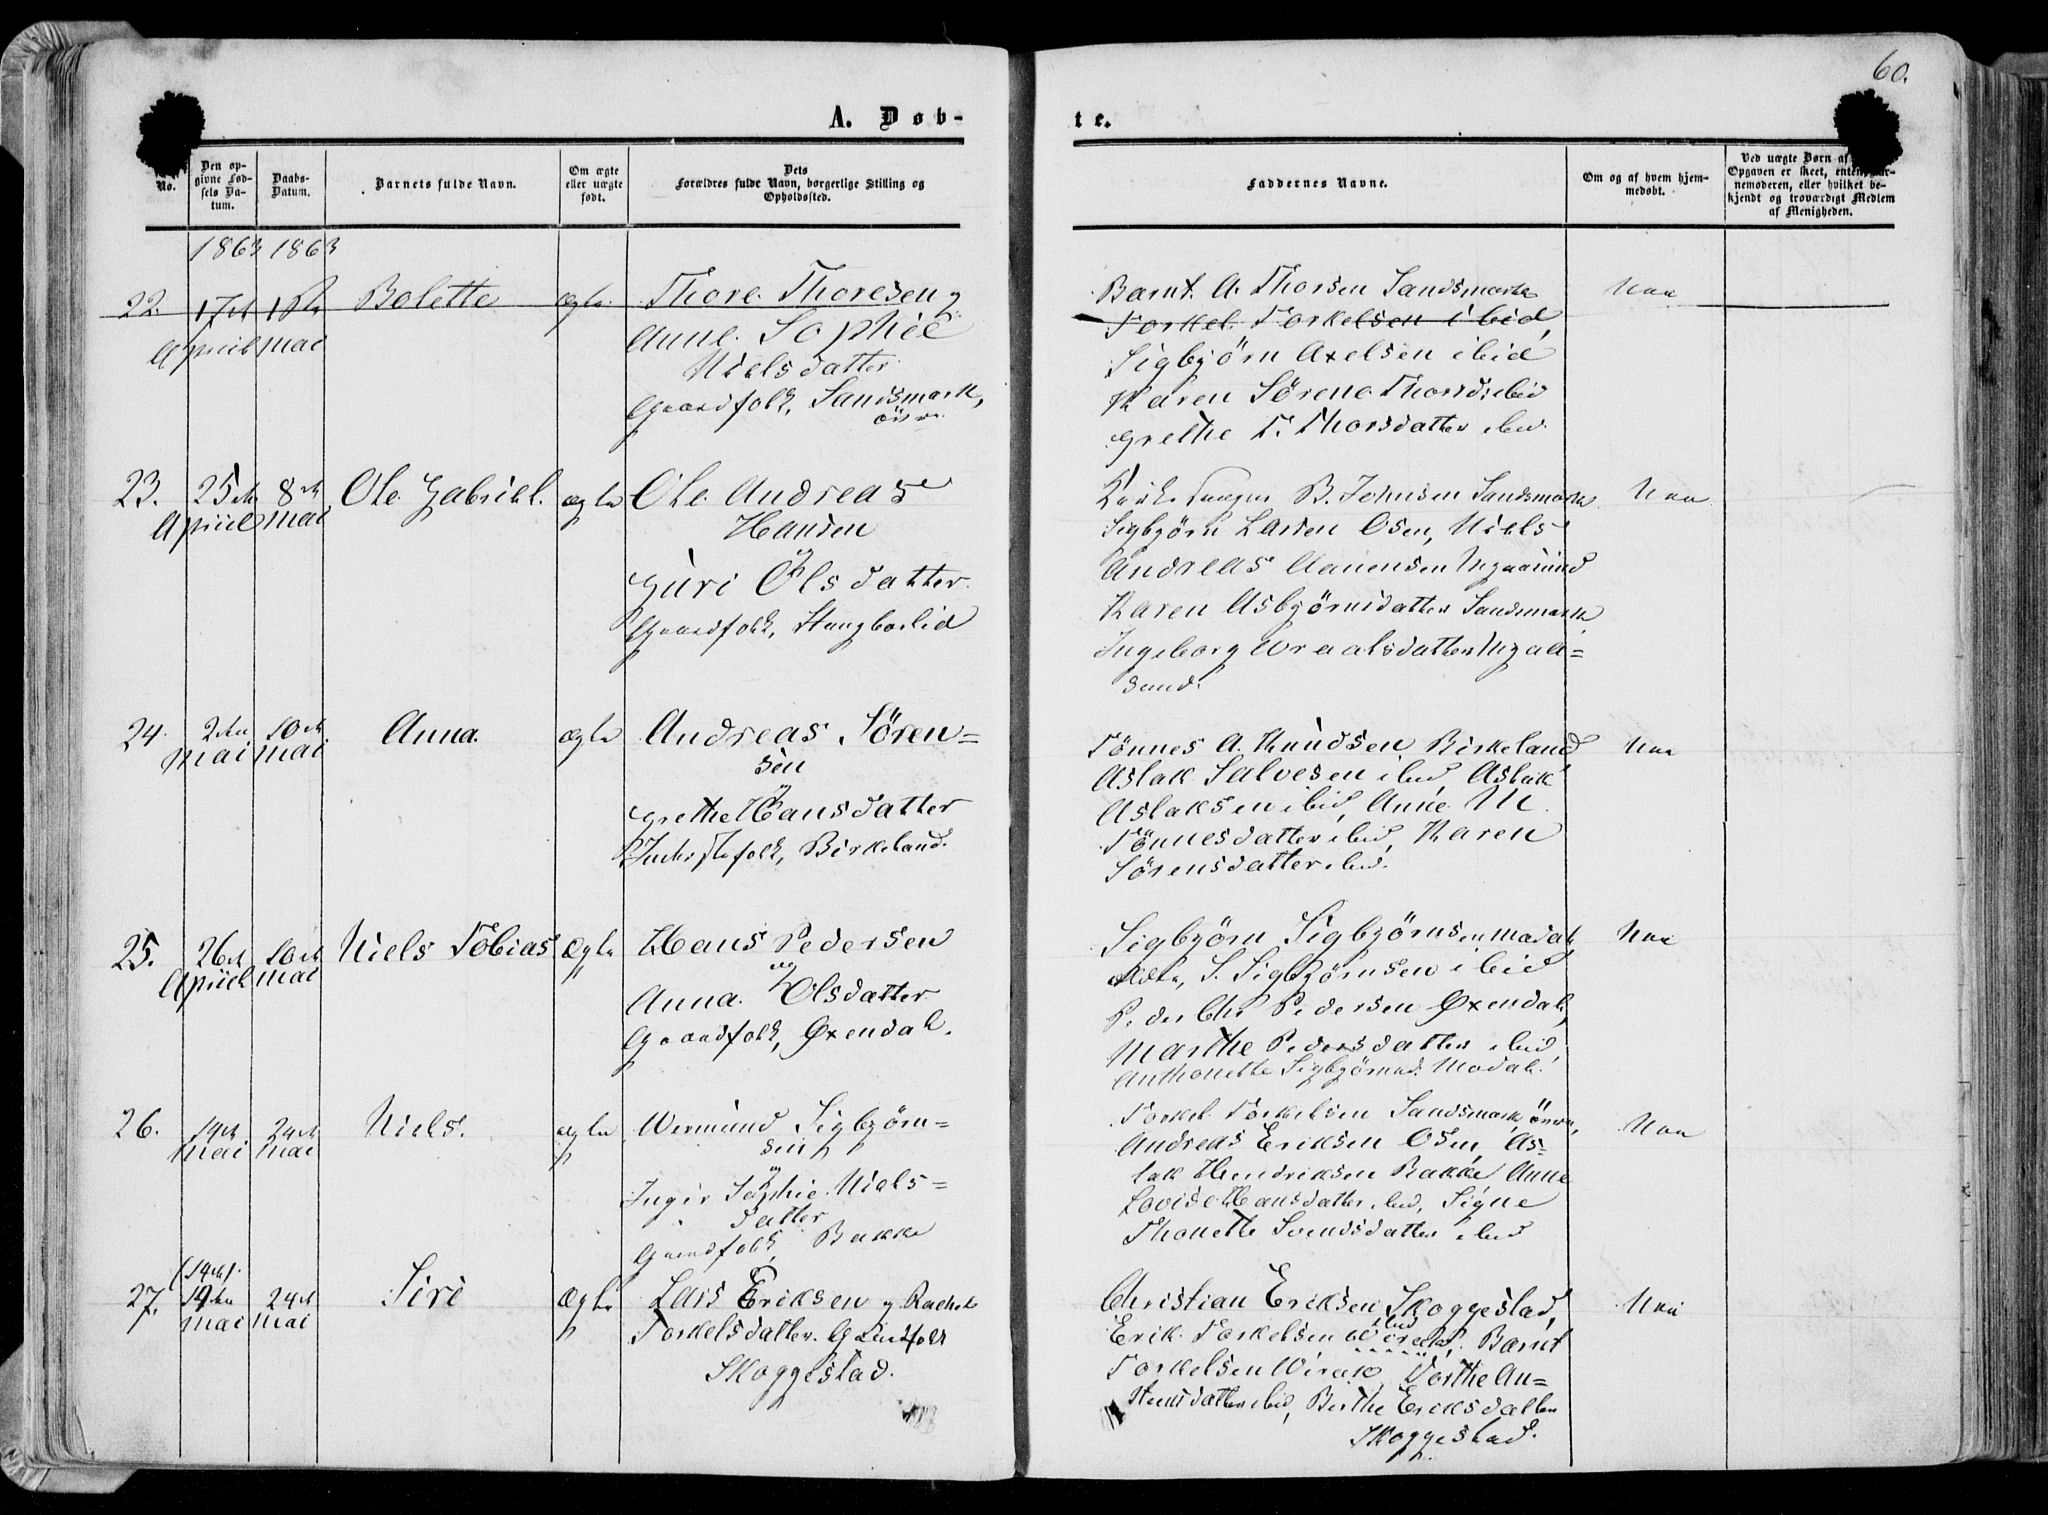 60.
A. Døb-
te.
No.
Den op-
givne Fød-
sels Da-
tum.
Daabs-
Datum.
Barnets fulde Navn.
Om ægte
eller uægte
født.
Dets
Forældres fulde Navn, borgerlige Stilling og
Opholdssted.
Faddernes Navne.
Om og af hvem hjem-
medøbt.
Ved uægte Børn af
Opgaven er skeet, enten
nemoderen, eller hvilket be-
kjendt og troværdigt Medlem
af Menigheden.
1863 1863
22. 17de 1ste Bolette ægte Thore Thoresen og
April Mai Anne Sophie
Nielsdatter
Gaardfolk, Sandsmark,
øvre
Barnt A. Thorsen Sandsmark Nei
Torkel Torkelsen ibid,
Sigbjörn Axelsen ibid
Karen Sørene Thorsd. ibid
Grethe T. Thorsdatter ibid.
23. 25de 8de Ole Gabriel. ægte Ole Andreas
April Mai Hansen
og
Guri Olsdatter
Gaardfolk, Stangborlid
Kirkesanger B. Johnsen Sandsmark Nei
Sigbjörn Larsen Osen, Niels
Andreas Aanensen
Karen Asbjörnsdatter Sandsmark
Ingeborg Wraalsdatter
sund.
24. 2den 10de Anna. ægte Andreas Sören=
Mai Mai sen
og
Grethe Hansdatter
Inderstefolk, Birkeland.
Tönnes A. Knudsen Birkeland Nei
Aslak Salvesen ibid, Aslak
Aslaksen ibid, Anne M.
Tönnesdatter ibid, Karen
Sörensdatter ibid.
25. 26de 10de Niels Tobias Ægte Hans Pedersen
April Mai og
Anna Olsdatter
Gaardfolk, Øxendal.
Sigbjörn Sigbjörnsen Modal, Nei
S. Sigbjörnsen ibid
Peder Chr Pedersen Øxendal,
Marthe Pedersdatter ibid,
Anthonette Sigbjörnsd. Modal.
26. 14de 24de Niels. ægte Wermund Sigbjörn=
Mai Mai sen
og
Inger Sophie Niels=
datter
Gaardfolk, Bakke
Torkel Torkelsen Sandsmark övre, Nei
Andreas Eriksen Osen, As=
lak Hendriksen Bakke Anne
Lovise Hansdatter ibid, Signe
Thonette Svendsdatter ibid
(14de).
27. 19de 24de Siri Ægte Lars Eriksen og Rachel
Mai Mai Torkelsdatter Gaardfolk
Skoggestad.
Christian Eriksen Skoggestad, Nei
ibid
Erik Torkelsen Virak, Barnt
Torkelsen Virak Dorthe An=
stensdatter ibid, Berthe Eriksdatter
Skoggestad.